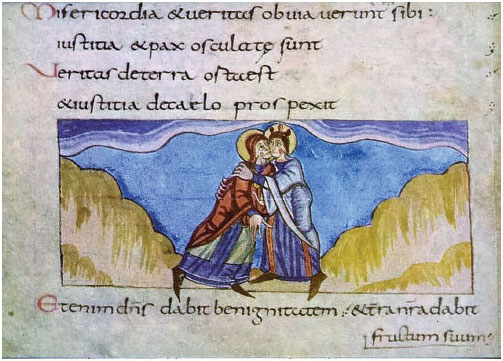 Misericordia &ueritas obuia uerunt sibi:
iustitia &pax osculate sunt
Ueritas deterra orta est
&iustitia decaelo prospexit
Etenim dn̄s dabit benignitatem: &t̄ran̄ra dabit
fructum suum